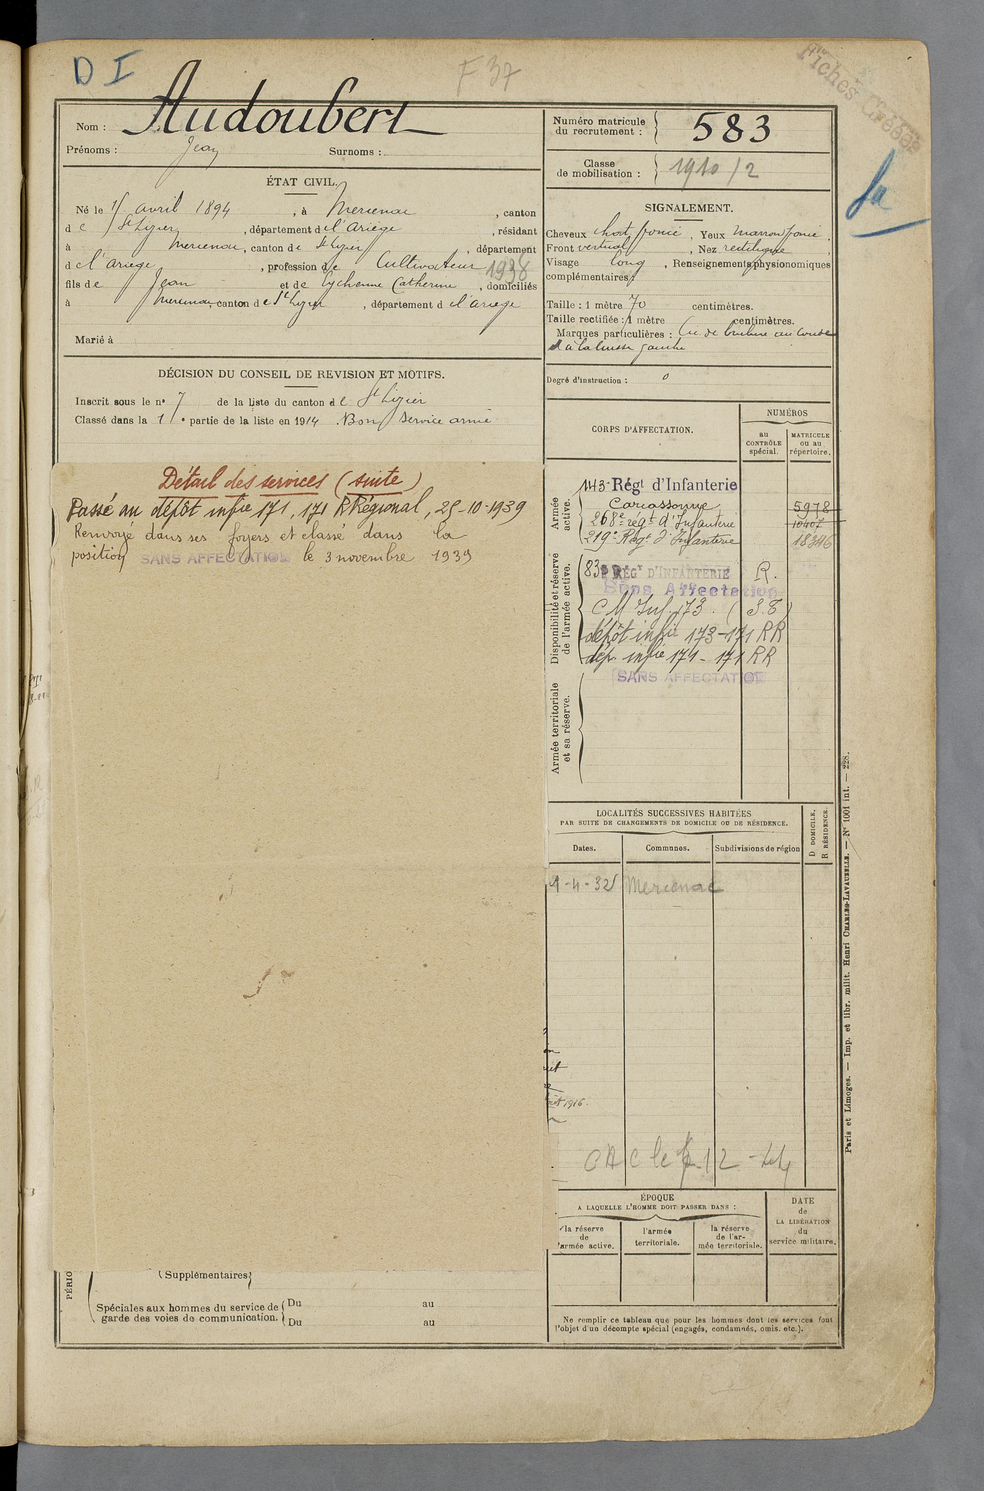 D I
F 37
Fiches Créées
Nom : Audoubert
Prénoms : Jean Surnoms :
Numéro matricule du recrutement : 583
Classe de mobilisation : 1910/2
ÉTAT CIVIL.
Né le avril 1894, à Mercenac, canton
de St Lizier, département de l'Ariège, résidant
à Mercenac, canton de St Lizier, département
de l'Ariège, profession de Cultivateur 1938
fils de Jean et de Catherine, domiciliés
à Mercenac canton de St Lizier, département de l'Ariège
Marié à
SIGNALEMENT.
Cheveux chat. foncé, Yeux marron foncé,
Front vertical, Nez rectiligne
Visage long, Renseignements physionomiques
complémentaires
Taille : 1 mètre 70 centimètres.
Taille rectifiée : 1 mètre centimètres.
Marques particulières : Cic. de brulure au coude
et à la cuisse gauche
Degré d'instruction : 0
DÉCISION DU CONSEIL DE REVISION ET MOTIFS.
Inscrit sous le n° 7 de la liste du canton de St Lizier
Classé dans la 1e partie de la liste en 1914. Bon service armé
CORPS D'AFFECTATION.
NUMÉROS
au CONTRÔLE spécial.
MATRICULE ou au répertoire.
Détail des services (suite)
Passé au dépôt infie 171, 171 R Régional, 25-10-1939
Renvoyé dans ses foyers et classé dans la
position SANS AFFECTATION le 3 novembre 1939
Armée active.
143e Régt d'Infanterie
Carcassonne 5978
268e régt d'Infanterie 10407
219e Régt d'Infanterie 18346
Disponibilité et réserve de l'armée active.
83e RÉGT D'INFANTERIE R.
Sans Affectation
C M Inf. 173. (S.E)
dépôt infie 173-171 RR
dép. infie 171-171 RR
SANS AFFECTATION
Armée territoriale et sa réserve.
LOCALITÉS SUCCESSIVES HABITÉES
PAR SUITE DE CHANGEMENTS DE DOMICILE OU DE RÉSIDENCE.
Dates. Communes. Subdivisions de région
D DOMICILE. R RÉSIDENCE.
1-4-32 Mercenac
1916.
ÉPOQUE
A LAQUELLE L'HOMME DOIT PASSER DANS :
la réserve de l'armée active.
l'armée territoriale.
la réserve de l'armée territoriale.
DATE de LA LIBÉRATION du service militaire.
PÉRIO
(Supplémentaires)
Spéciales aux hommes du service de garde des voies de communication.
Du au
Du au
Ne remplir ce tableau que pour les hommes dont les services font
l'objet d'un décompte spécial (engagés, condamnés, omis, etc.).
Paris et Limoges. — Imp. et libr. milit. Henri CHARLES-LAVAUZELLE. — N° 1001 int. — 228.